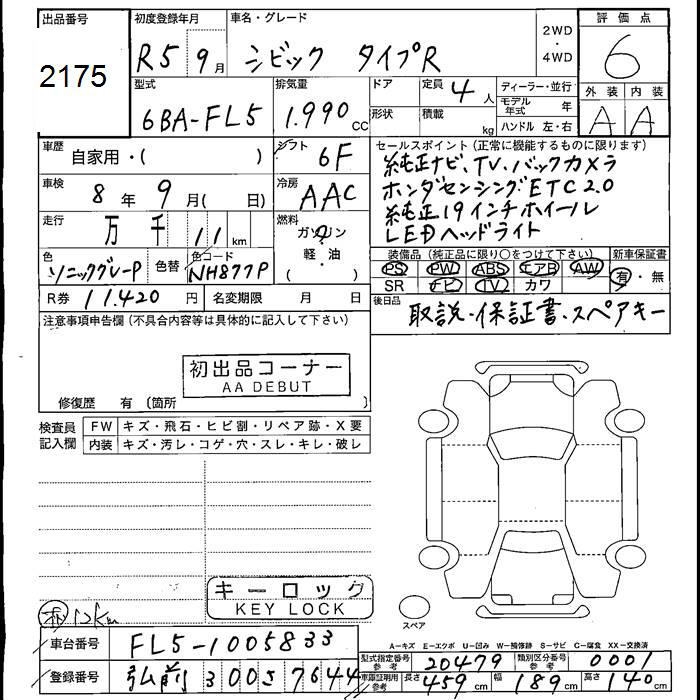 出品番号 初度登録年月 車名・グレード 2WD ・ 4WD 評価点
2175 R5 9月 シビック タイプR 6
型式 排気量 ドア 定員 4人 ディーラー・並行 外装 内装
6BA-FL5 1.990 CC 形状 積載 kg モデル年式 年 A A
ハンドル 左・右
車歴 自家用・( ) シフト 6F セールスポイント(正常に機能するものに限ります)
純正ナビ、TV、バックカメラ
車検 8年 9月( 日) 冷房 AAC ホンダセンシング ETC2.0
純正19インチホイール
走行 万 千 11 km 燃料 ガソリン 軽・油 ( ) LEDヘッドライト
色 ソニックグレーP 色替 色コード NH877P 装備品(純正品に限り○をつけて下さい) 新車保証書
PS PW ABS エアB AW 有・無
SR ナビ TV カワ
R券 11.420 円 名変期限 月 日 後日品
取説・保証書・スペアキー
注意事項申告欄(不具合内容等は具体的に記入して下さい)
初出品コーナー
AA DEBUT
修復歴 有 (箇所 )
検査員記入欄 FW キズ・飛石・ヒビ割・リペア跡・X要
内装 キズ・汚レ・コゲ・穴・スレ・キレ・破レ
キーロック
KEY LOCK
12km
スペア
車台番号 FL5-1005833
A-キズ E-エクボ U-凹み W-補修跡 S-サビ C-腐食 XX-交換済
型式指定番号参考 20479 類別区分番号参考 0001
登録番号 弘前 300 さ 7644
車庫証明用参考 長さ 459cm 幅 189cm 高さ 140cm